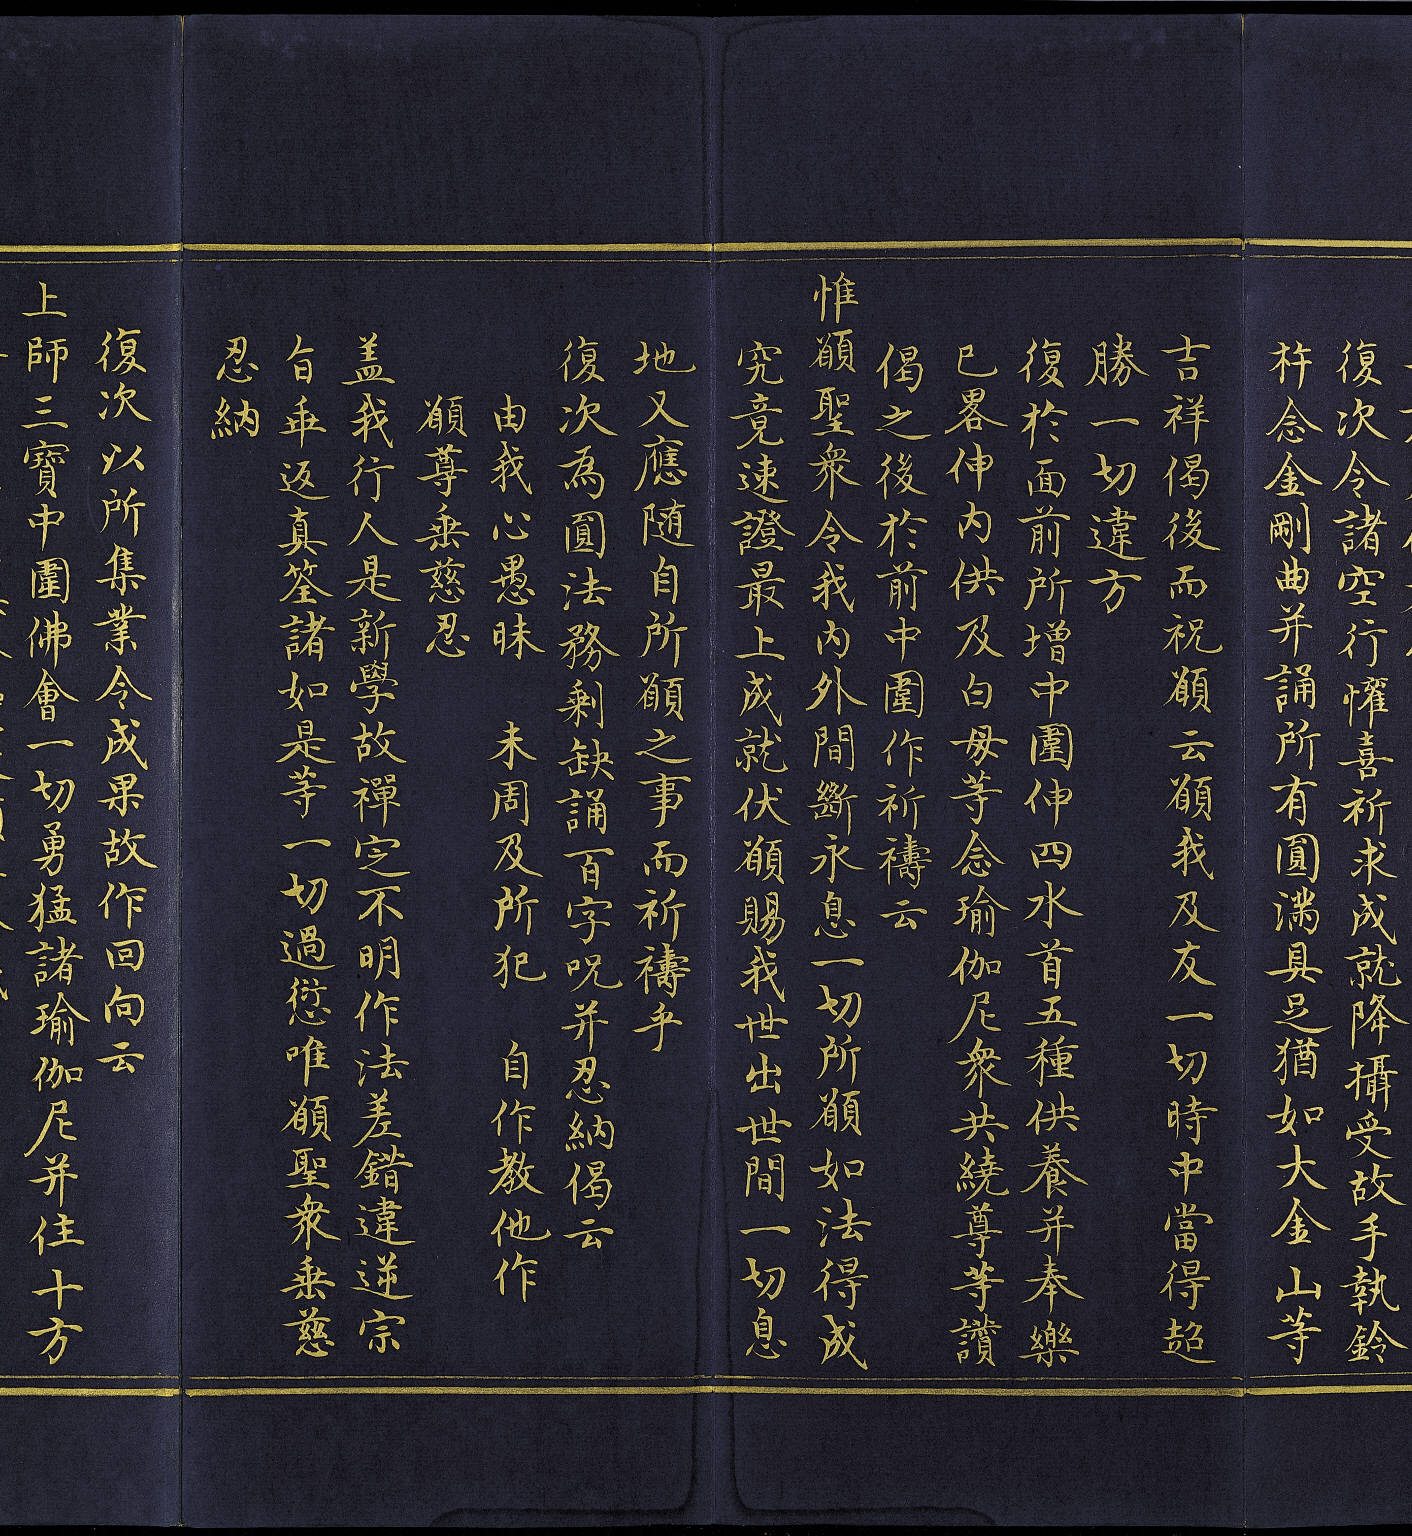 復次令諸空行懽喜祈求成就降攝受故手執鈴
杵念金剛曲并誦所有圓滿具足猶如大金山等
吉祥偈後而祝願云願我及友一切時中當得超
勝一切違方
復於面前所增中圍伸四水首五種供養并奉樂
已畧伸内供及白母等念瑜伽尼衆共繞尊等讃
偈之後於前中圍作祈禱云
惟願聖衆令我内外間斷永息一切所願如法得成
究竟速證最上成就伏願賜我世出世間一切息
地又應随自所願之事而祈禱乎
復次為圓法務剩缺誦百字呪并忍納偈云
由我心愚昧　未周及所犯　自作教他作
願尊垂慈忍
盖我行人是新學故禪定不明作法差錯違逆宗
旨乖返真筌諸如是等一切過愆唯願聖衆垂慈
忍納
復次以所集業令成果故作回向云
上師三寶中圍佛會一切勇猛諸瑜伽尼并住十方